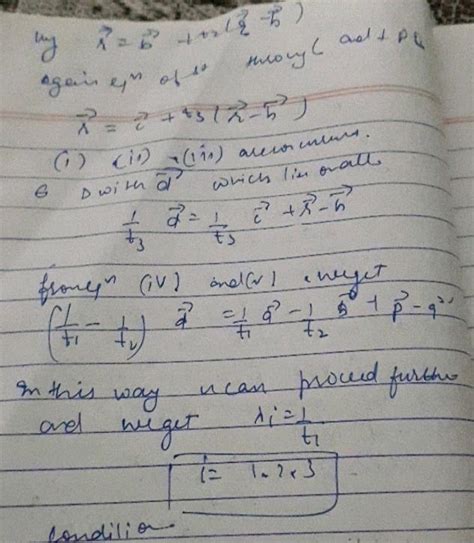 by r⃗ = b⃗ + t₂(q⃗ - b⃗)
again eqⁿ of through and
r⃗ = c⃗ + t₃(r⃗ - h⃗)
(i) (ii) (iii)
with d⃗ which lies on all
1/t₃ d⃗ = 1/t₃ c⃗ + r⃗ - h⃗
from eqⁿ (iv) and (v) we get
(1/t₁ - 1/t₂) d⃗ = 1/t₁ a⃗ - 1/t₂ b⃗ + p⃗ - q⃗
In this way u can proceed further
and we get λi = 1/t₁
i = 1, 2, 3
condition